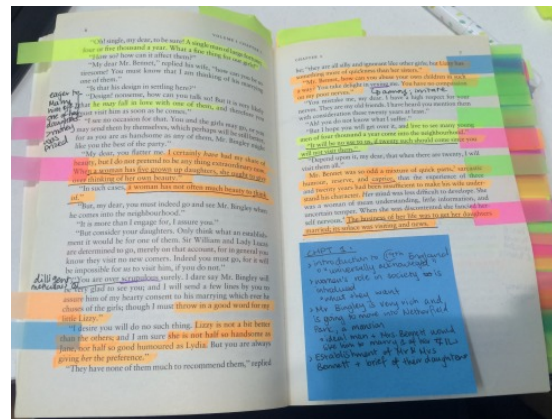 VOLUME I CHAPTER I
"Oh! single, my dear, to be sure! A single man of large fortune;
four or five thousand a year. What a fine thing for our girls!"
"How so? how can it affect them?"
"My dear Mr. Bennet," replied his wife, "how can you be so
tiresome! You must know that I am thinking of his marrying
one of them."
"Is that his design in settling here?"
"Design! nonsense, how can you talk so! But it is very likely
that he may fall in love with one of them, and therefore you
must visit him as soon as he comes."
"I see no occasion for that. You and the girls may go, or you
may send them by themselves, which perhaps will be still better,
for as you are as handsome as any of them, Mr. Bingley might
like you the best of the party."
"My dear, you flatter me. I certainly have had my share of
beauty, but I do not pretend to be any thing extraordinary now.
When a woman has five grown up daughters, she ought to give
over thinking of her own beauty."
"In such cases, a woman has not often much beauty to think
of."
"But, my dear, you must indeed go and see Mr. Bingley when
he comes into the neighbourhood."
"It is more than I engage for, I assure you."
"But consider your daughters. Only think what an establish-
ment it would be for one of them. Sir William and Lady Lucas
are determined to go, merely on that account, for in general you
know they visit no new comers. Indeed you must go, for it will
be impossible for us to visit him, if you do not."
"You are over scrupulous surely. I dare say Mr. Bingley will
be very glad to see you; and I will send a few lines by you to
assure him of my hearty consent to his marrying which ever he
chuses of the girls; though I must throw in a good word for my
little Lizzy."
"I desire you will do no such thing. Lizzy is not a bit better
than the others; and I am sure she is not half so handsome as
Jane, nor half so good humoured as Lydia. But you are always
giving her the preference."
"They have none of them much to recommend them," replied
one of
daughters
CHAPTER I
he; "they are all silly and ignorant like other girls; but Lizzy has
something more of quickness than her sisters."
"Mr. Bennet, how can you abuse your own children in such
a way? You take delight in vexing me. You have no compassion
on my poor nerves."
annoying, irritate
"You mistake me, my dear. I have a high respect for your
nerves. They are my old friends. I have heard you mention them
with consideration these twenty years at least."
"Ah! you do not know what I suffer."
"But I hope you will get over it, and live to see many young
men of four thousand a year come into the neighbourhood."
"It will be no use to us, if twenty such should come since you
will not visit them."
"Depend upon it, my dear, that when there are twenty, I will
visit them all."
Mr. Bennet was so odd a mixture of quick parts, sarcastic
humour, reserve, and caprice, that the experience of three
and twenty years had been insufficient to make his wife under-
stand his character. Her mind was less difficult to develope. She
was a woman of mean understanding, little information, and
uncertain temper. When she was discontented she fancied her-
self nervous. The business of her life was to get her daughters
married; its solace was visiting and news.
CHPT 1:
introduction to England
"universally acknowledged"
role in society is
what they want
Mr Bingley is very rich and
is going to move into Netherfield
Park, a mansion
ideal man & Mrs Bennet would
like him to marry 1 of his
Establishment of Mr & Mrs
Bennett & brief of their daughters